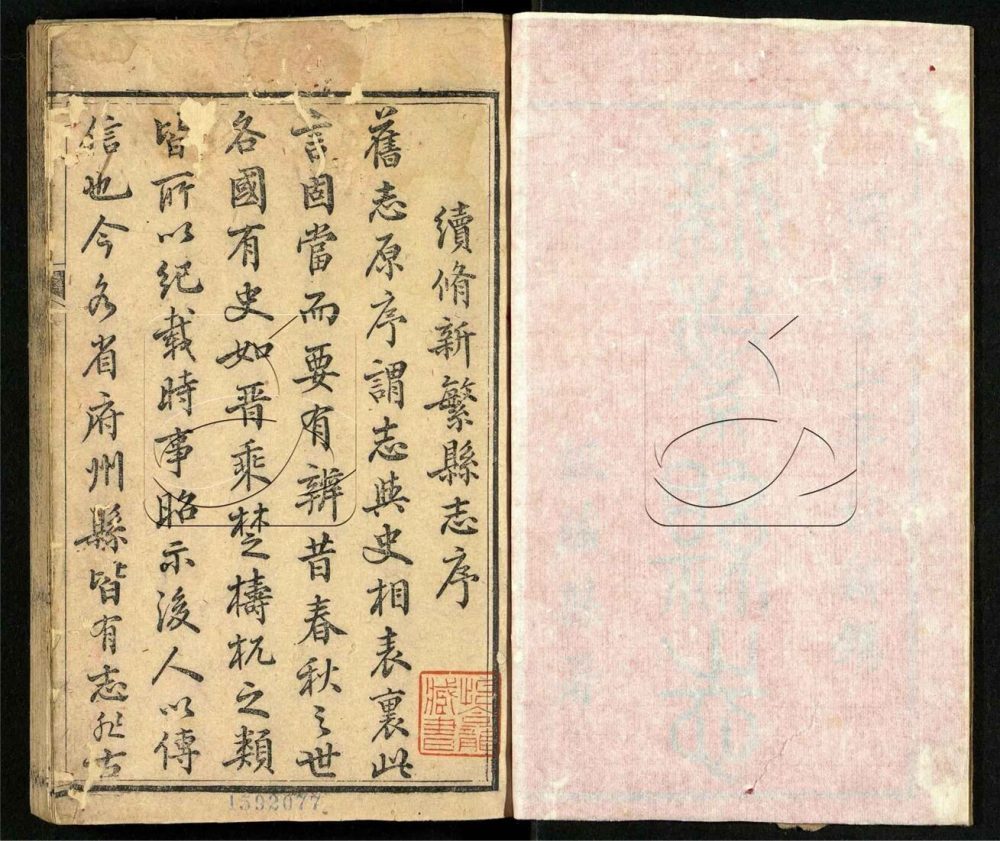 續脩新繁縣志序
舊志原序謂志與史相表裏此
言固當而要有辨昔春秋之世
各國有史如晋乘楚檮杌之類
皆所以紀載時事昭示後人以傳
信也今各省府州縣皆有志非古
藏書
1392077